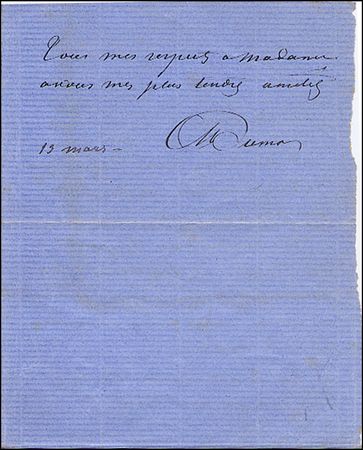 Tous mes respects a madame
a vous mes plus tendres amitiés
13 mars –